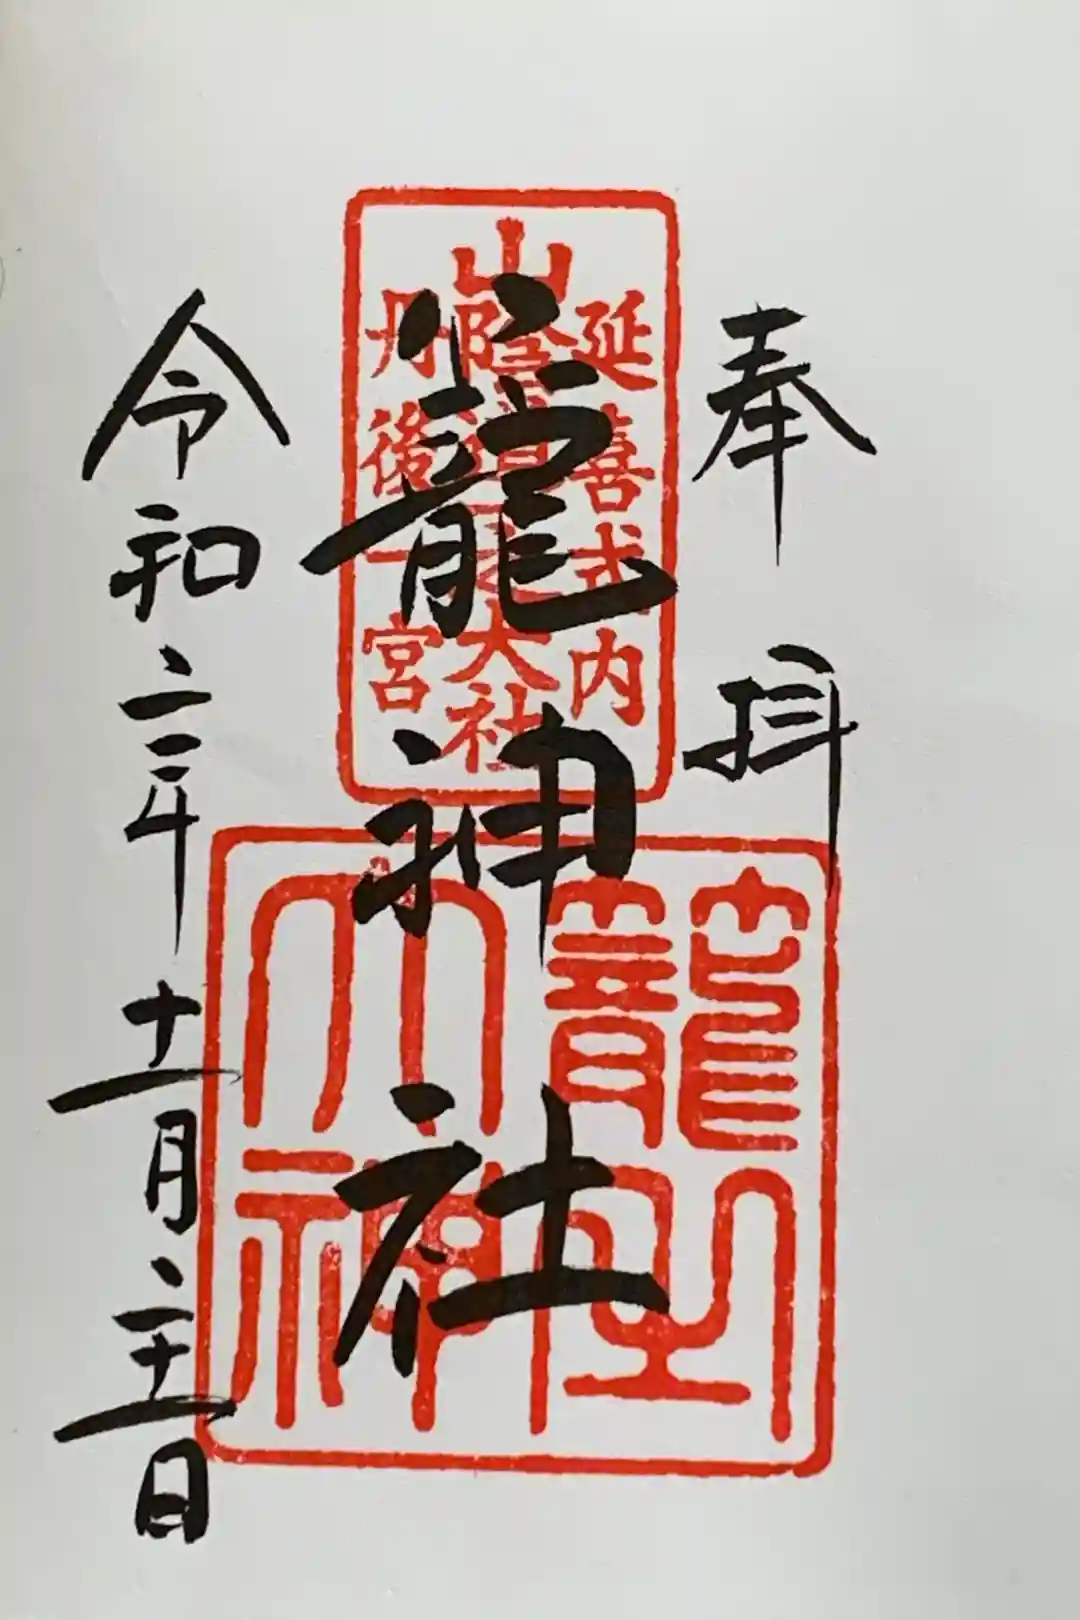 奉拝
延喜式内
山陰道 大社
丹後一宮
籠神社
籠
大神
令和二年十一月二十一日